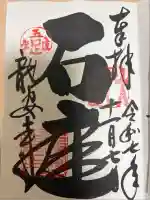 奉拝
令和七年
十一月七日
石庭
龍安寺